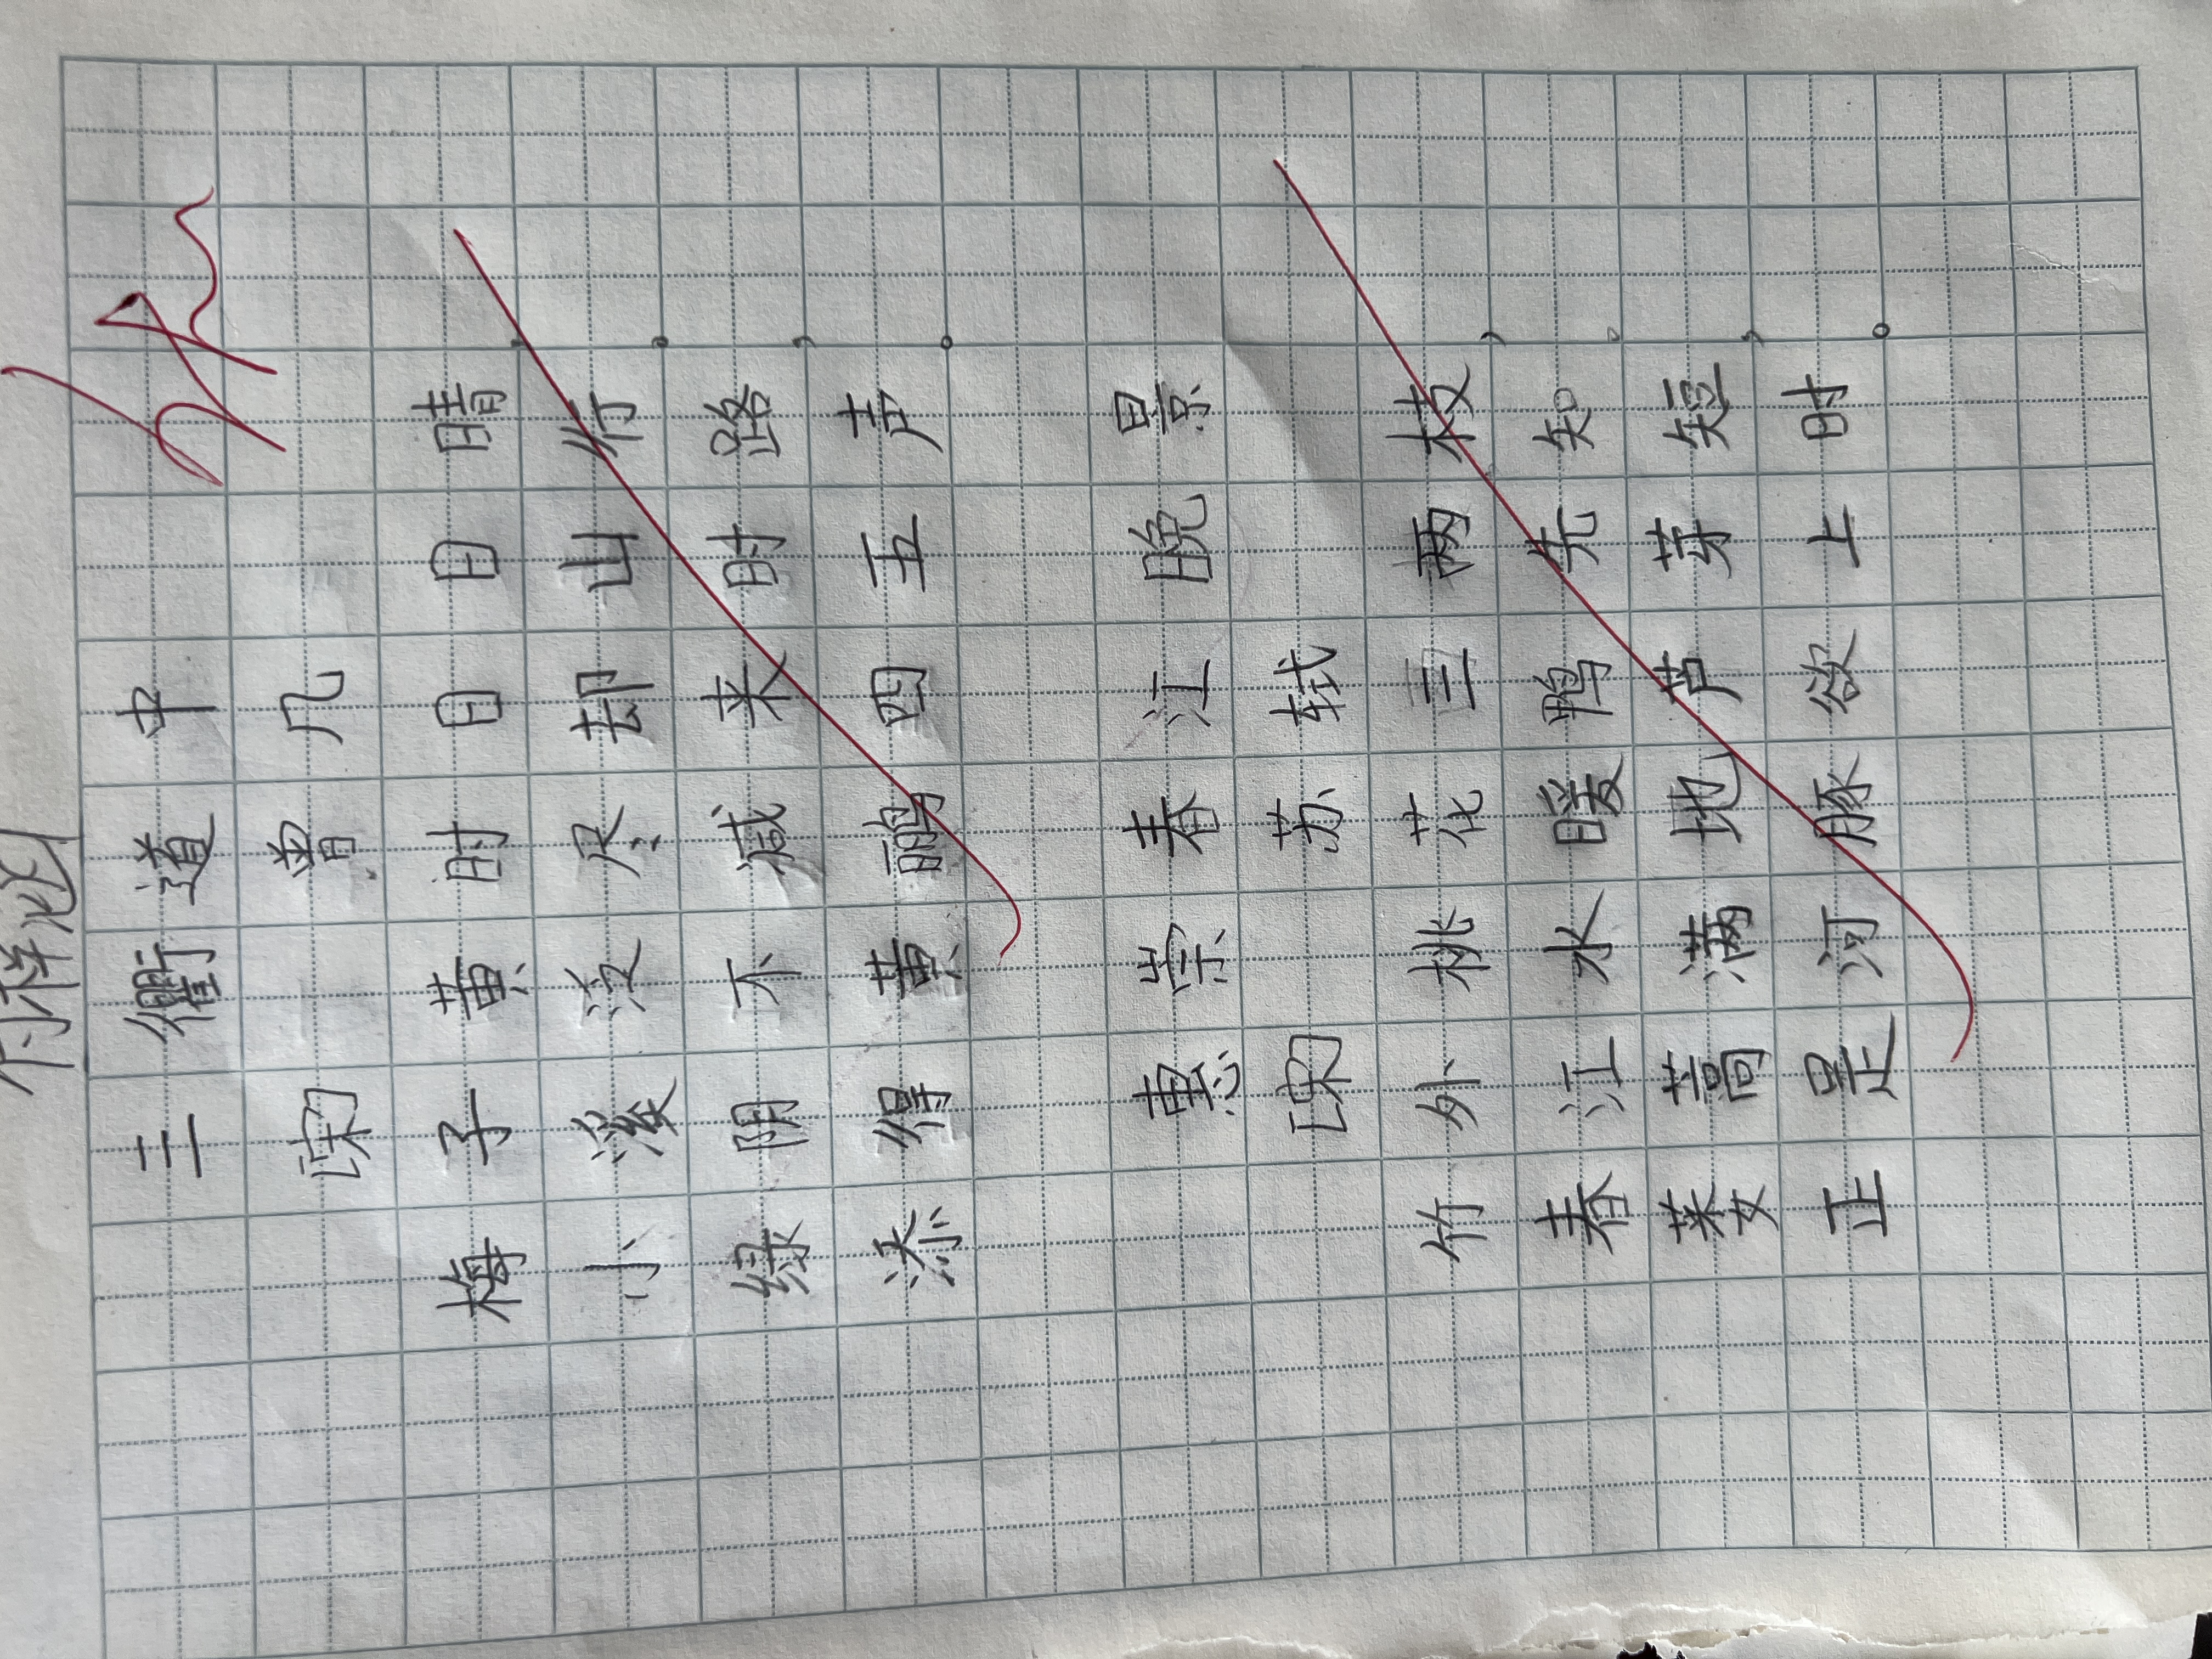 三衢道中
[宋] 曾几
梅子黄时日日晴,
小溪泛尽却山行。
绿阴不减来时路,
添得黄鹂四五声。
惠崇春江晚景
[宋] 苏轼
竹外桃花三两枝,
春江水暖鸭先知。
蒌蒿满地芦芽短,
正是河豚欲上时。